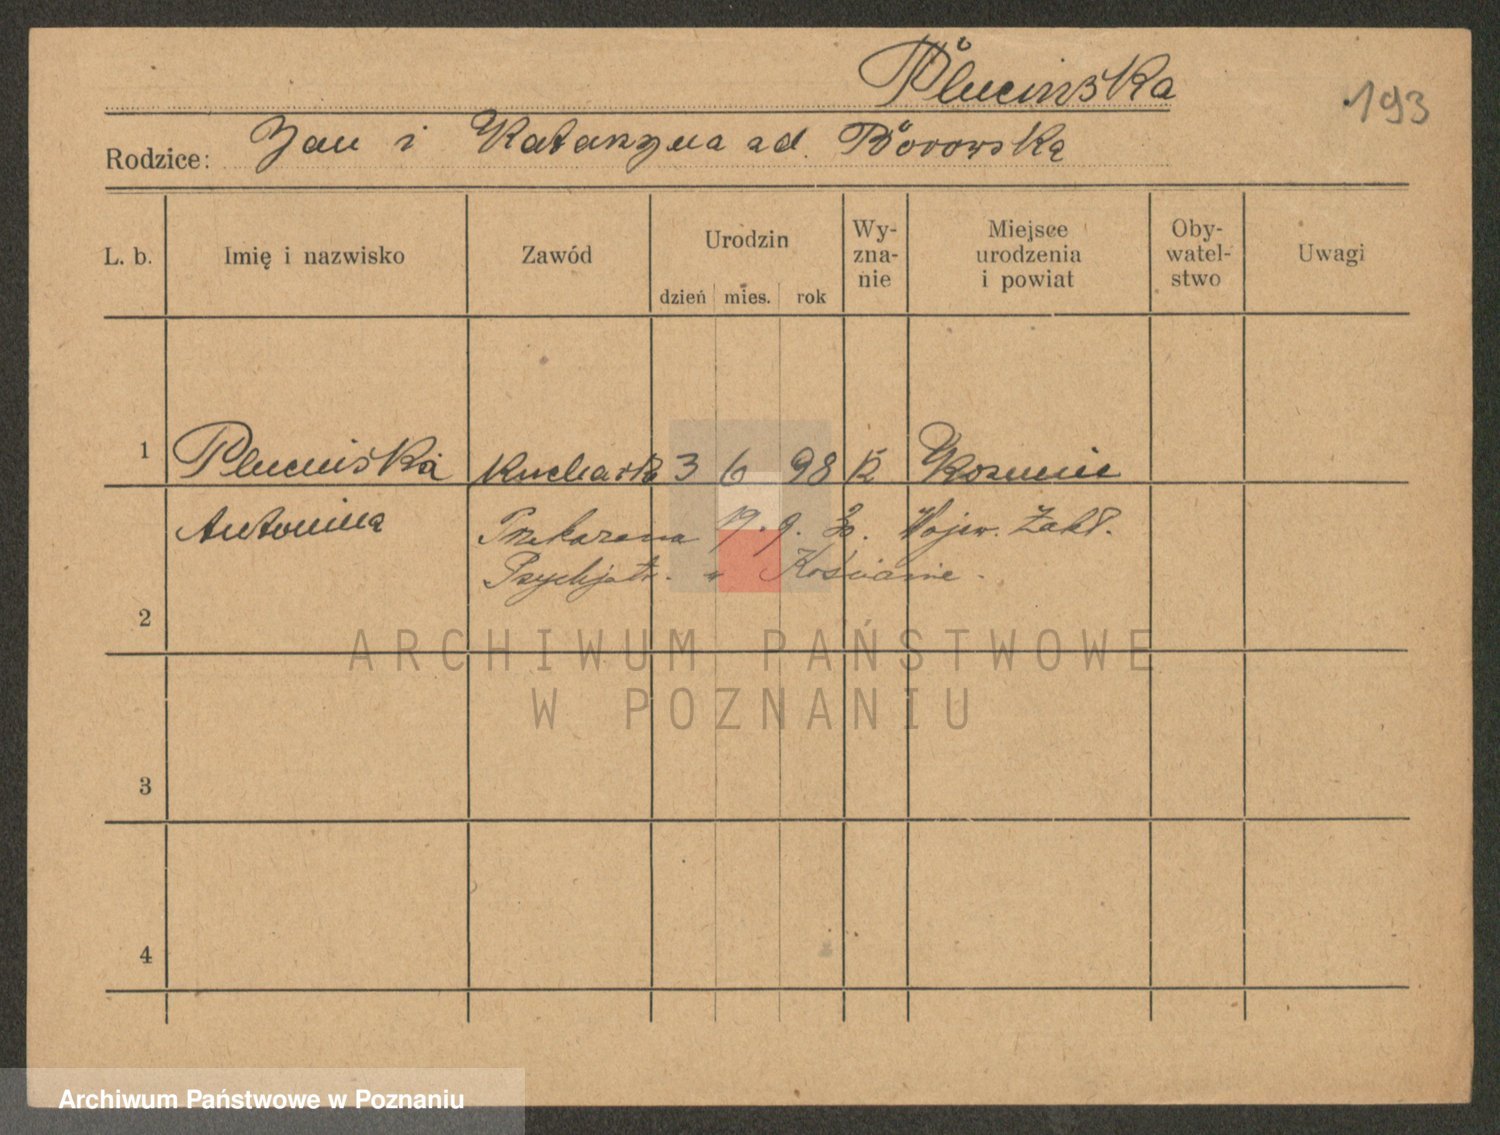 Plucińska
193
Rodzice: Jan i Katarzyna od. Borowską
L. b. Imię i nazwisko Zawód Urodzin dzień mies. rok Wy-zna-nie Miejsce urodzenia i powiat Oby-watel-stwo Uwagi
1 Plucińska Kucharka 3 6 98 K
Antonina Przekazana 19.9. 30. Wojew. Zakł.
Psychjatr. w Kościanie.
2
ARCHIWUM PAŃSTWOWE
W POZNANIU
3
4
Archiwum Państwowe w Poznaniu